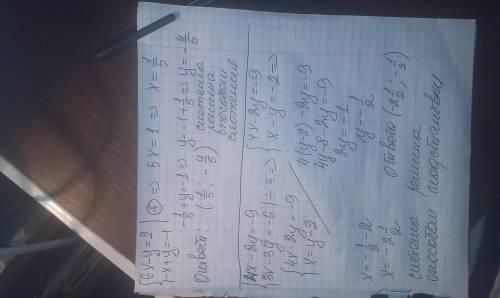 {6x-y=2 | ⊕ => 5x=1 => x=1/5
{-x+y=-1
-1/5+y=-1 => y=-1+1/5 => y=-4/5
Ответ: (1/5; -4/5)
система
решена
способом
сложения
{4x-2y=-9
{3x-3y=-6 | ÷3 =>
{4x-2y=-9
{x-y=-2 =>
{4x-2y=-9
{x=y-2
4(y-2)-2y=-9
4y-8-2y=-9
2y=-1
y=-1/2
x=-1/2-2
x=-2 1/2
Ответ (-2 1/2; -1/2)
система решена
способом подстановки